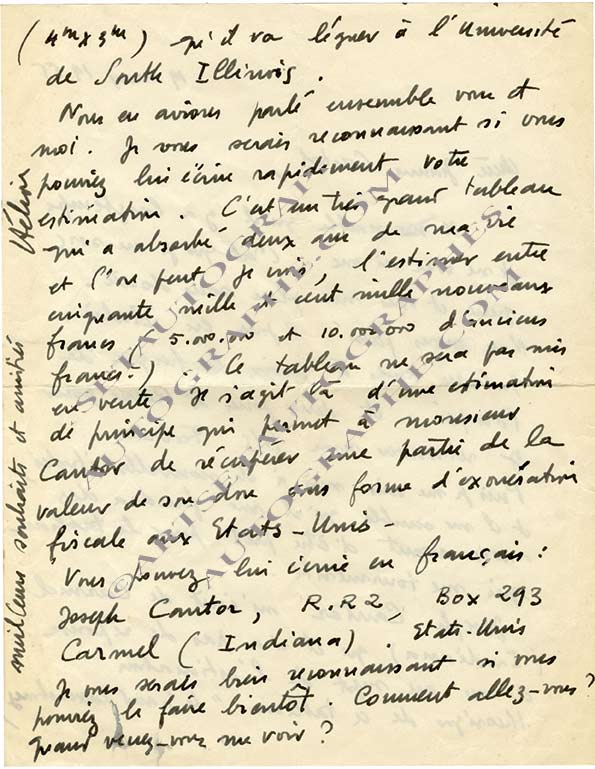 (4m x 3m) qu'il va léguer à l'Université
de South Illinois.
Nous en avions parlé ensemble vous et
moi. Je vous serais reconnaissant si vous
pouviez lui écrire rapidement votre
estimation. C'est un très grand tableau
qui a absorbé deux ans de ma vie
et l'on peut, je crois, l'estimer entre
cinquante mille et cent mille nouveaux
francs (5.000.000 et 10.000.000 d'anciens
francs.) Ce tableau ne sera pas mis
en vente. Il s'agit là d'une estimation
de principe qui permet à monsieur
Cantor de récupérer une partie de la
valeur de son don sous forme d'exonération
fiscale aux Etats-Unis-
Vous pouvez lui écrire en français:
Joseph Cantor, R.R2, Box 293
Carmel (Indiana) Etats-Unis
Je vous serais bien reconnaissant si vous
pouviez le faire bientôt. Comment allez-vous?
quand venez-vous me voir?
meilleurs souhaits et amitiés
Hélion
© ARTSETAUTOGRAPHES.COM